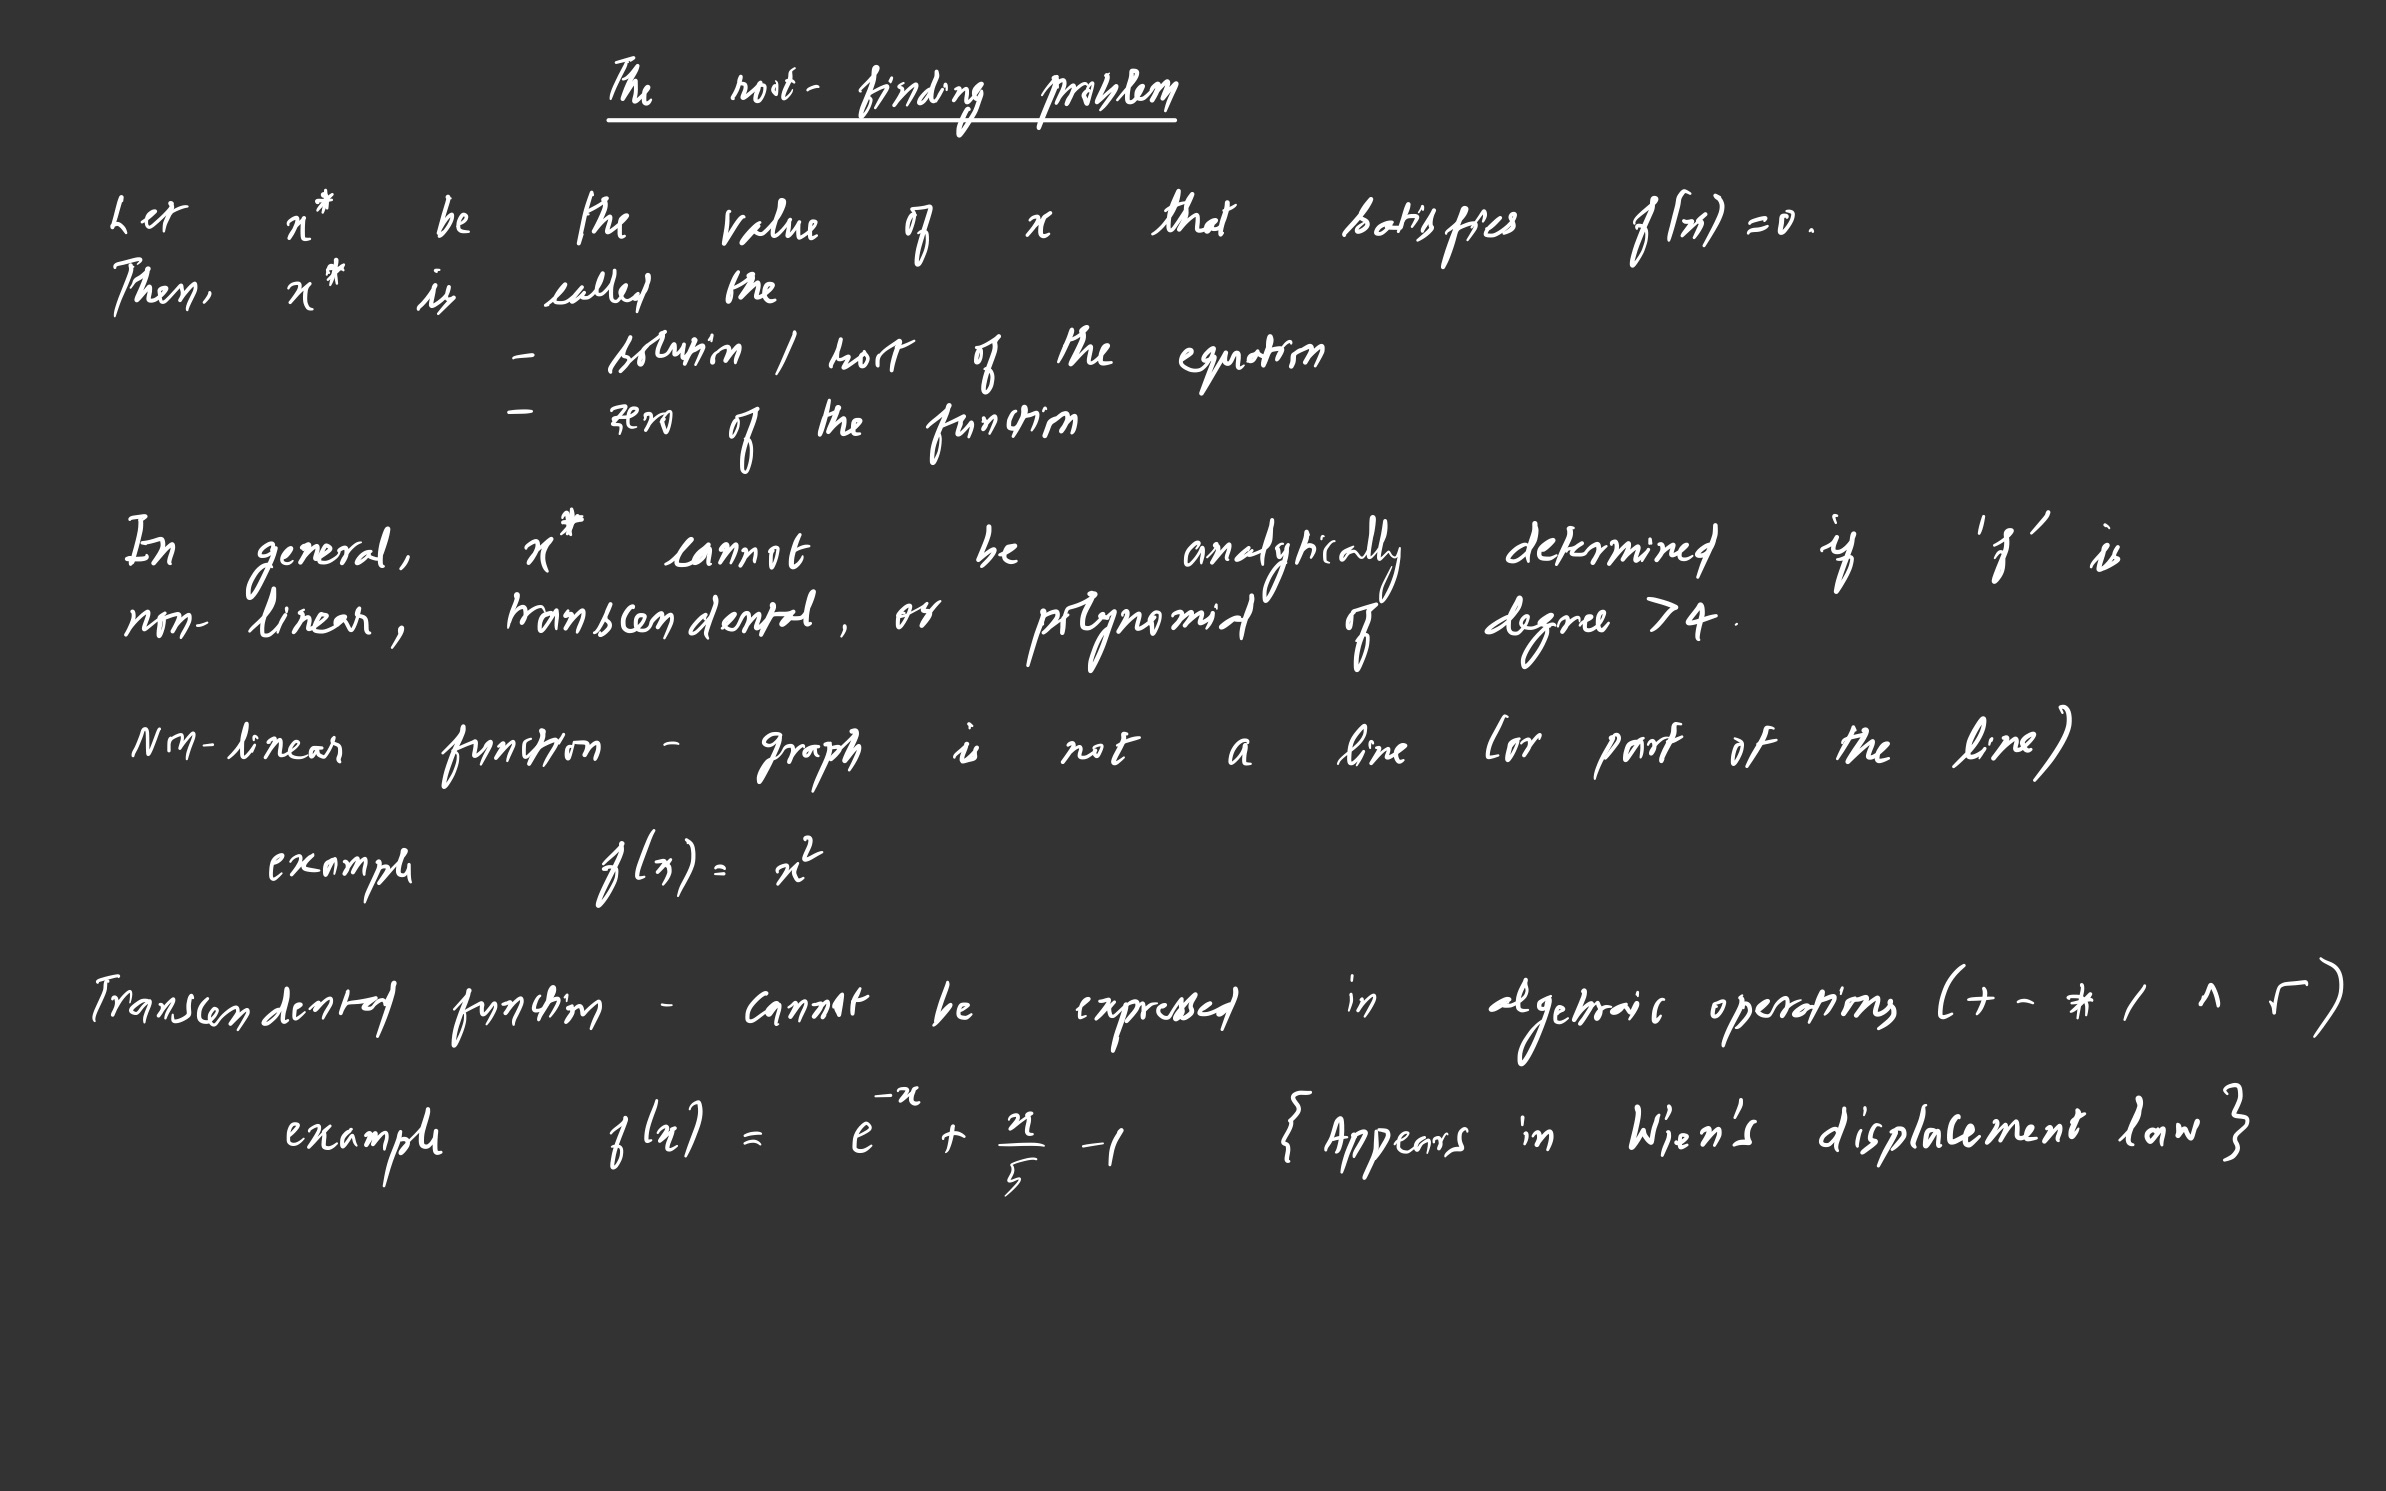 The root-finding problem
Let x* be the value of x that satisfies f(x)=0.
Then, x* is called the
- solution / root of the equation
- zero of the function
In general, x* cannot be analytically determined if 'f' is
non-linear, transcendental, or polynomial of degree >4.
Non-linear function - graph is not a line (or part of the line)
example f(x) = x²
Transcendental function - cannot be expressed in algebraic operations (+ - * / ^ √)
example f(x) = e^{-x} + x/5 - 1 {Appears in Wien's displacement law}